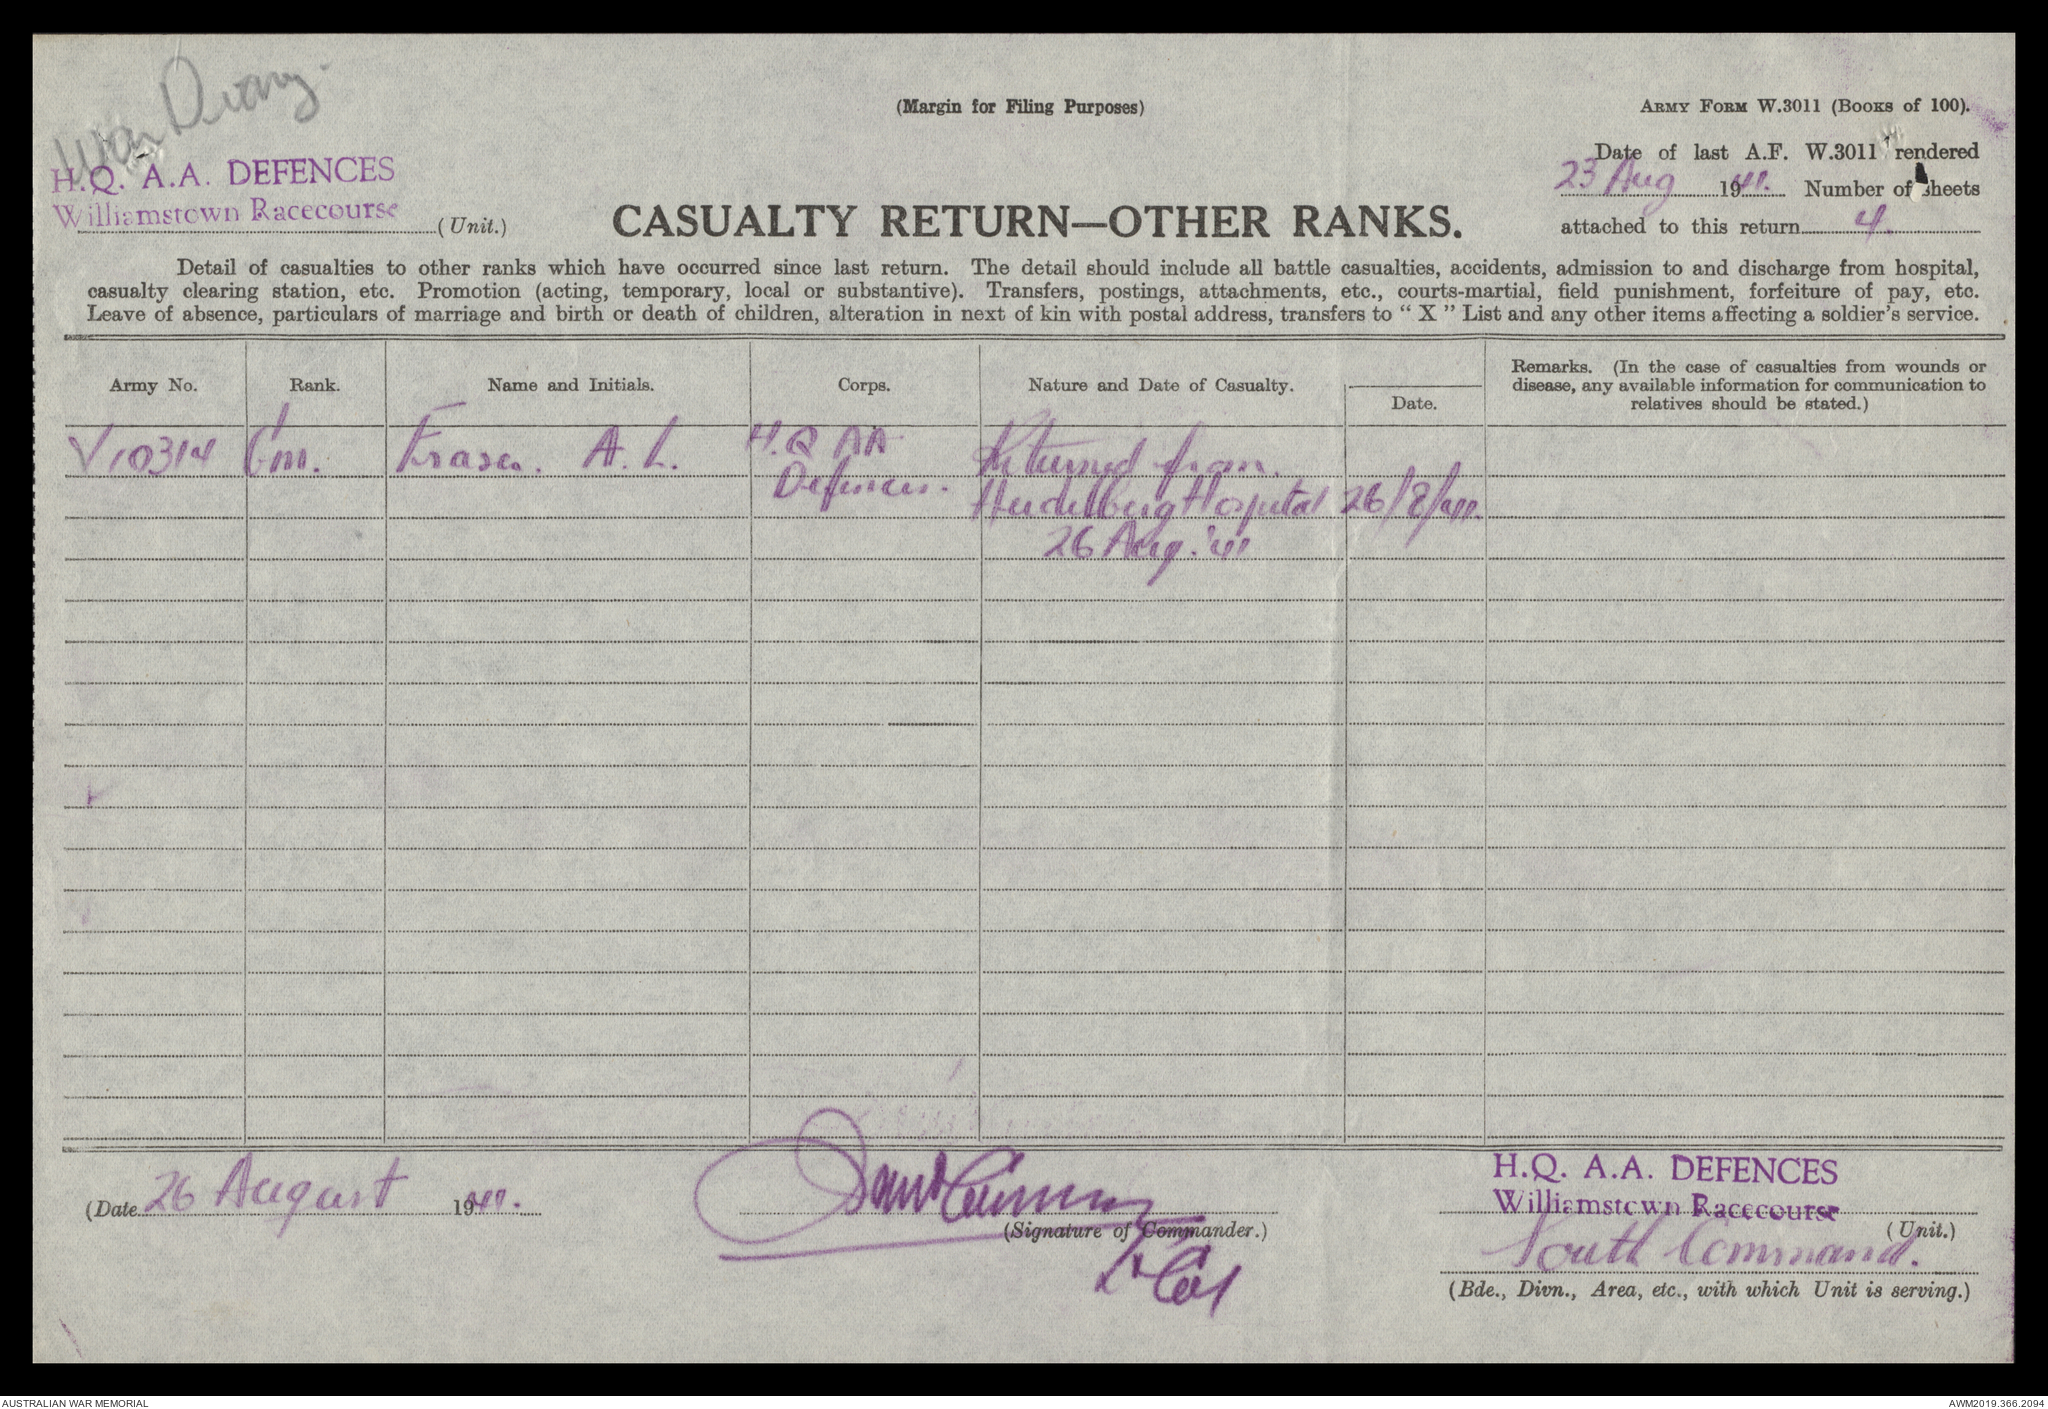 War Diary.
(Margin for Filing Purposes)
ARMY FORM W.3011 (BOOKS OF 100).
H.Q. A.A. DEFENCES
Williamstown Racecourse (Unit.)
CASUALTY RETURN—OTHER RANKS.
Date of last A.F. W.3011 rendered
23 Aug 1941. Number of sheets
attached to this return 4.
Detail of casualties to other ranks which have occurred since last return. The detail should include all battle casualties, accidents, admission to and discharge from hospital,
casualty clearing station, etc. Promotion (acting, temporary, local or substantive). Transfers, postings, attachments, etc., courts-martial, field punishment, forfeiture of pay, etc.
Leave of absence, particulars of marriage and birth or death of children, alteration in next of kin with postal address, transfers to “ X ” List and any other items affecting a soldier's service.
Army No. Rank. Name and Initials. Corps. Nature and Date of Casualty. Date. Remarks. (In the case of casualties from wounds or
disease, any available information for communication to
relatives should be stated.)
V10314 Gnr. Fraser. A. L. H.Q AA Returned from
Defences. Heidelberg Hospital 26/8/41.
26 Aug. '41
(Date 26 August 1941.
(Signature of Commander.)
Lt Col
H.Q. A.A. DEFENCES
Williamstown Racecourse
(Unit.)
South Command.
(Bde., Divn., Area, etc., with which Unit is serving.)
AUSTRALIAN WAR MEMORIAL
AWM2019.366.2094